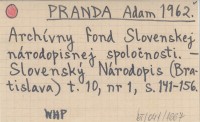 PRANDA Adam 1962.
Archívny fond Slovenskej
národopisnej spoločnosti. —
Slovenský Národopis (Bra-
tislava) t. 10, nr 1, s. 141-156.
WHP